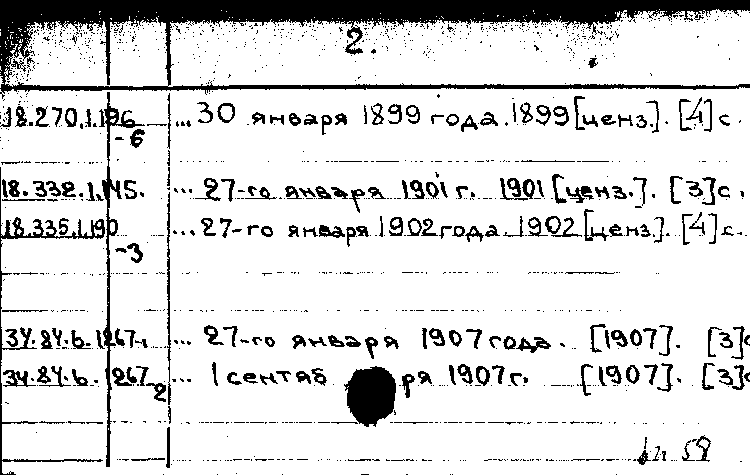 2.
18.270.1.196 ... 30 января 1899 года. 1899 [ценз.]. [4] с.
-6
18.332.1.145. ... 27-го января 1901 г. 1901 [ценз.]. [3] с.
18.335.1.190 ... 27-го января 1902 года. 1902 [ценз.]. [4] с.
-3
34.84.6.1267-1 ... 27-го января 1907 года. [1907]. [3] с
34.84.6.1267-2 ... 1 сентяб ря 1907 г. [1907]. [3] с
59